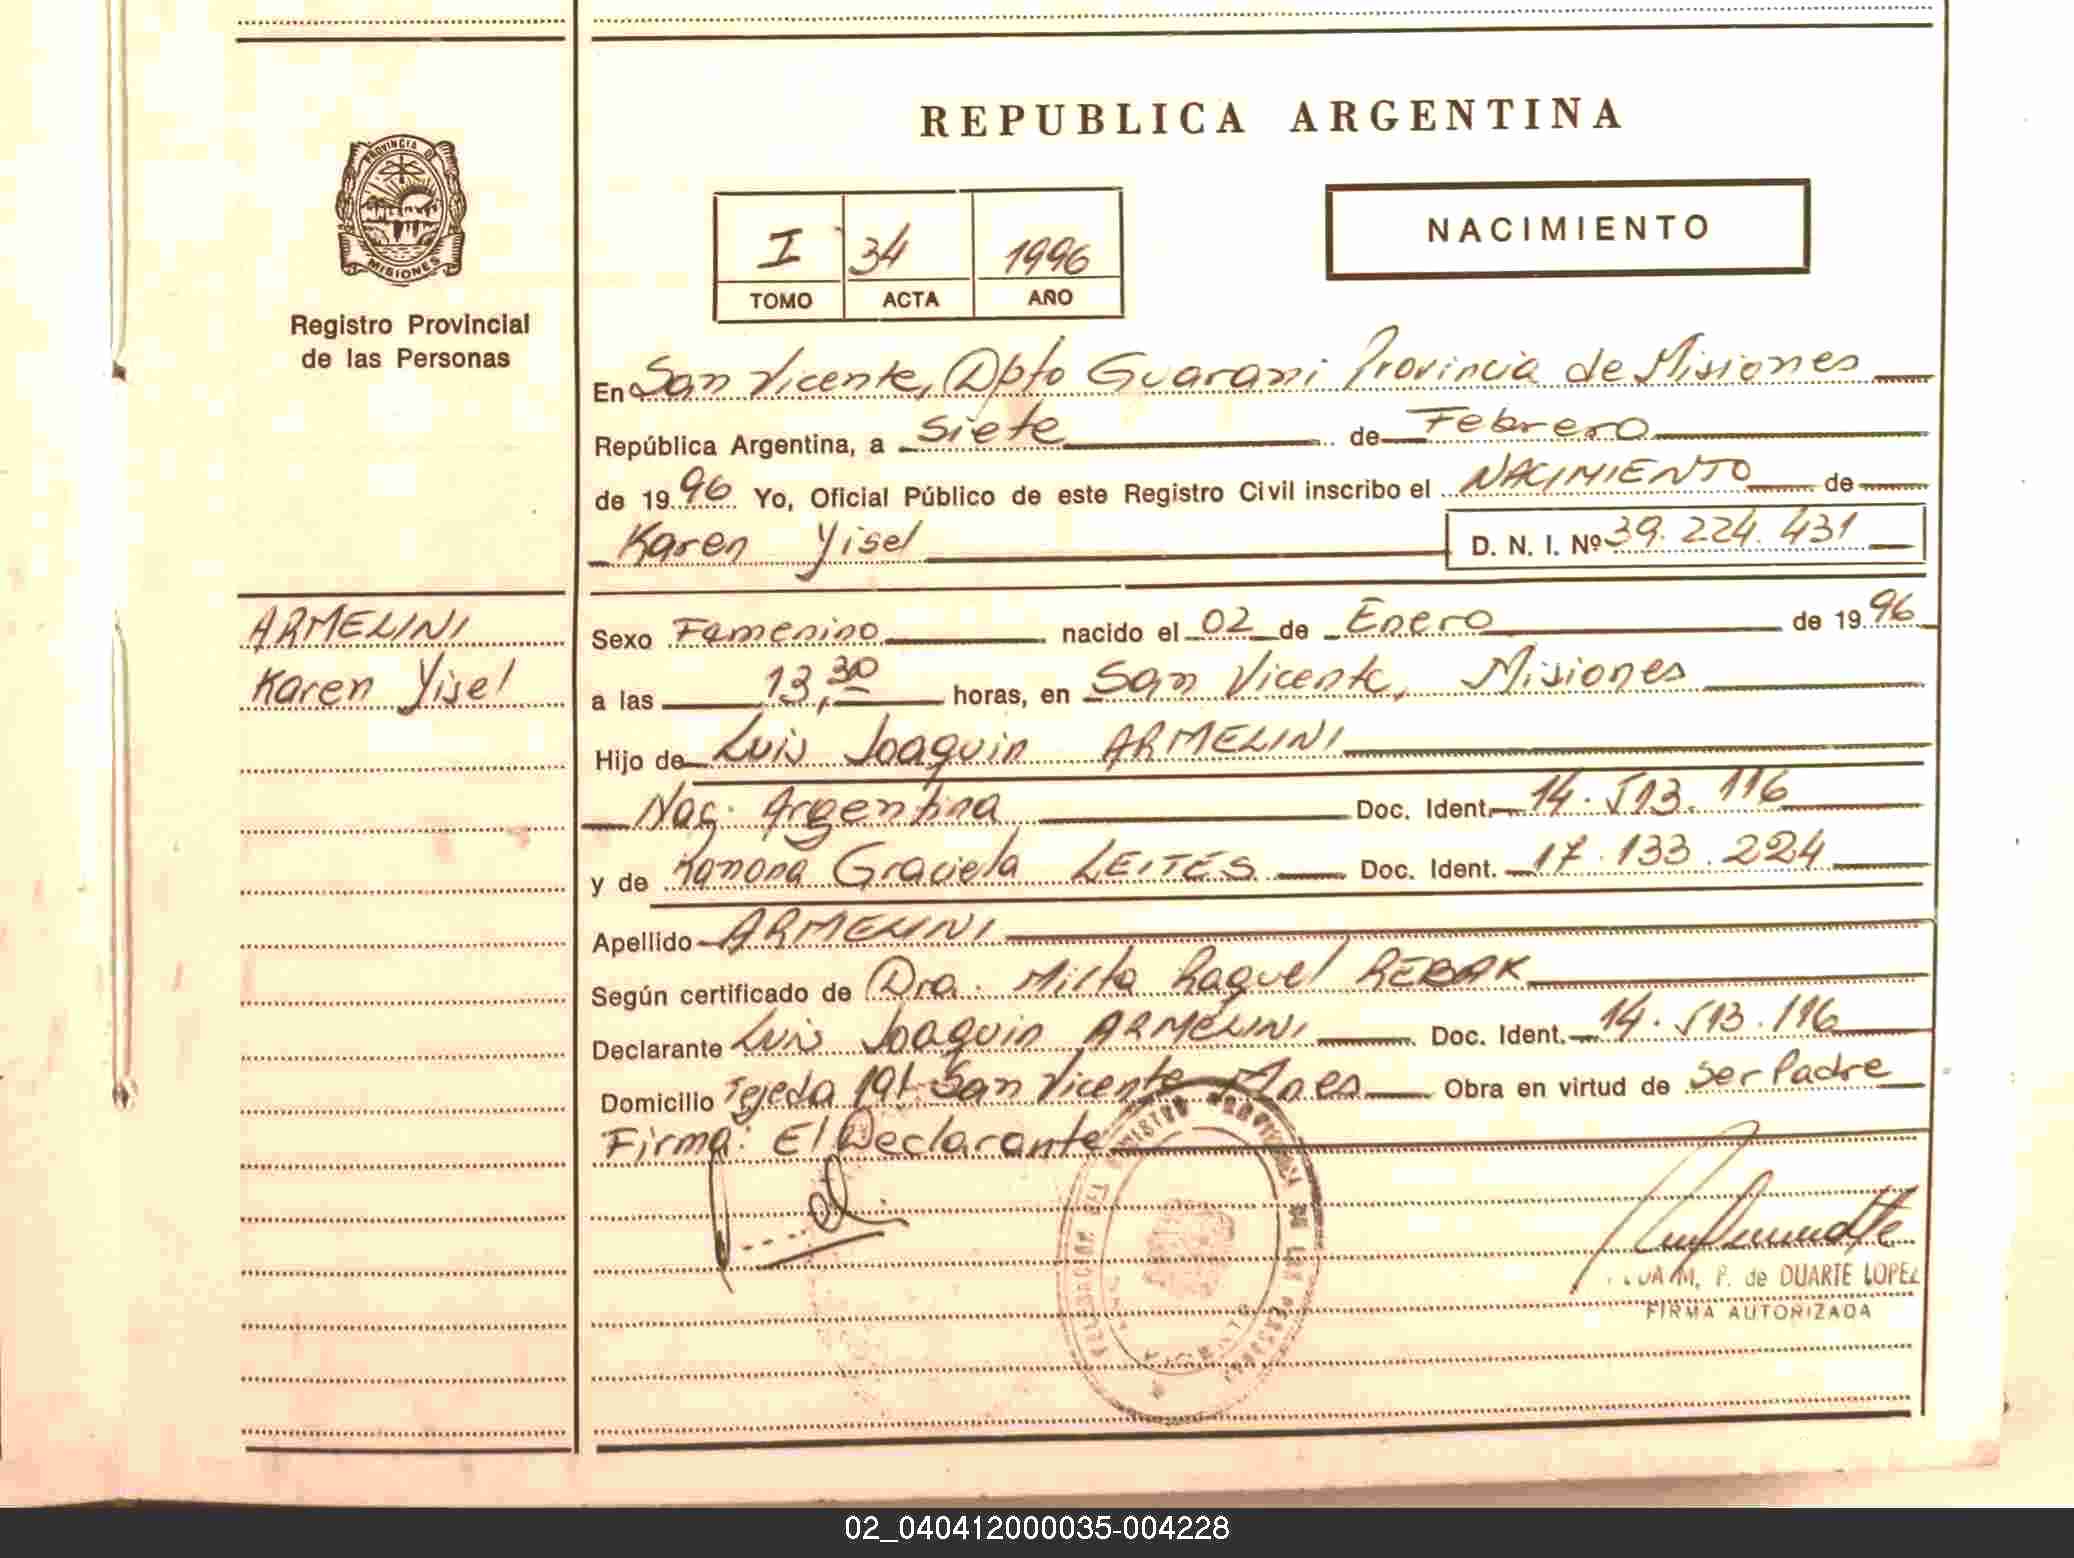 REPUBLICA ARGENTINA
PROVINCIA DE
MISIONES
Registro Provincial
de las Personas
I 34 1996
TOMO ACTA AÑO
NACIMIENTO
En San Vicente, Dpto Guarani Provincia de Misiones
República Argentina, a siete de Febrero
de 1996 Yo, Oficial Público de este Registro Civil inscribo el NACIMIENTO de
Karen Yisel D. N. I. Nº 39.224.431
ARMELINI
Karen Yisel
Sexo Femenino nacido el 02 de Enero de 1996
a las 13,30 horas, en San Vicente, Misiones
Hijo de Luis Joaquin ARMELINI
Nac. Argentina Doc. Ident. 14.513.116
y de Ramona Graciela LEITES Doc. Ident. 17.133.224
Apellido ARMELINI
Según certificado de Dra. Mirta Raquel REBAK
Declarante Luis Joaquin ARMELINI Doc. Ident. 14.513.116
Domicilio Tejeda 191 San Vicente Mnes Obra en virtud de ser Padre
Firma: El Declarante
P. de DUARTE LOPEZ
FIRMA AUTORIZADA
02_040412000035-004228